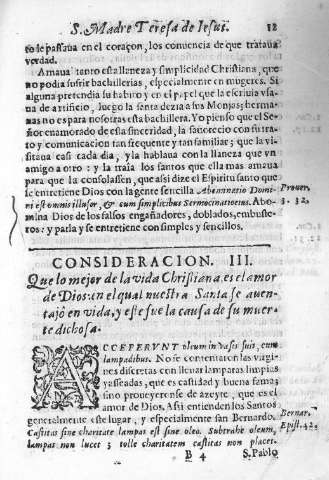 S. Madre Teresa de Iesus. 12
to le passaua en el coraçon, los conuencia de que trataua
verdad.
Amaua tanto esta llaneza y simplicidad Christiana, que
no podia sufrir bachillerias, especialmente en mugeres. Si
alguna pretendia su habito y en el papel que la escriuia vsa-
ua de artificio, luego la santa dezia a sus Monjas; herma-
nas no es para nosotras esta bachillera. Yo pienso que el Se-
ñor enamorado de esta sinceridad, la fauorecio con su tra-
to y comunicacion tan frequente y tan familiar; que la vi-
sitaua casi cada dia, y la hablaua con la llaneza que vn
amigo a otro: y la traia los santos que ella mas amaua
para que la consolassen, que assi dize el Espiritu santo que
se entretiene Dios con la gente sencilla Abominatio Domi- Prouer.
ni est omnis illusor, & cum simplicibus Sermocinatio eius. Abo- 3. 32.
mina Dios de los falsos engañadores, doblados, embuste-
ros: y parla y se entretiene con simples y sencillos.
CONSIDERACION. III.
Que lo mejor de la vida Christiana, es el amor
de Dios: en el qual nuestra Santa se auen-
tajò en vida, y este fue la causa de su muer-
te dichosa.
ACCEPERVNT oleum in vasis suis, cum
lampadibus. No se contentaron las virgi-
nes discretas con lleuar lamparas limpias
y asseadas, que es castidad y buena fama;
sino proueyeronse de azeyte, que es el
amor de Dios. Assi entienden los Santos
generalmente este lugar, y especialmente san Bernardo. Bernar.
Castitas sine charitate lampas est sine oleo. Subtrahe oleum, Epist. 42.
lampas non lucet; tolle charitatem castitas non placet.
B 4 S. Pablo